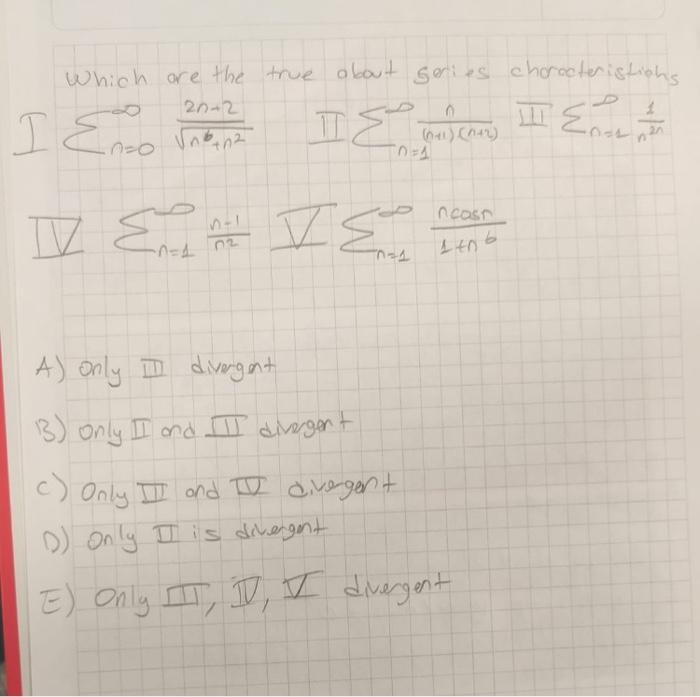 Which are the true about series characteristichs
I ∑_{n=0}^{∞} \frac{2n+2}{\sqrt{n^6+n^2}} II ∑_{n=1}^{∞} \frac{n}{(n+1)(n+2)} III ∑_{n=1}^{∞} \frac{1}{n^{2n}}
IV ∑_{n=1}^{∞} \frac{n-1}{n^2} V ∑_{n=1}^{∞} \frac{ncosn}{1+n^6}
A) Only III divergent
B) Only II and III divergent
C) Only III and IV divergent
D) Only II is divergent
E) Only III, IV, V divergent